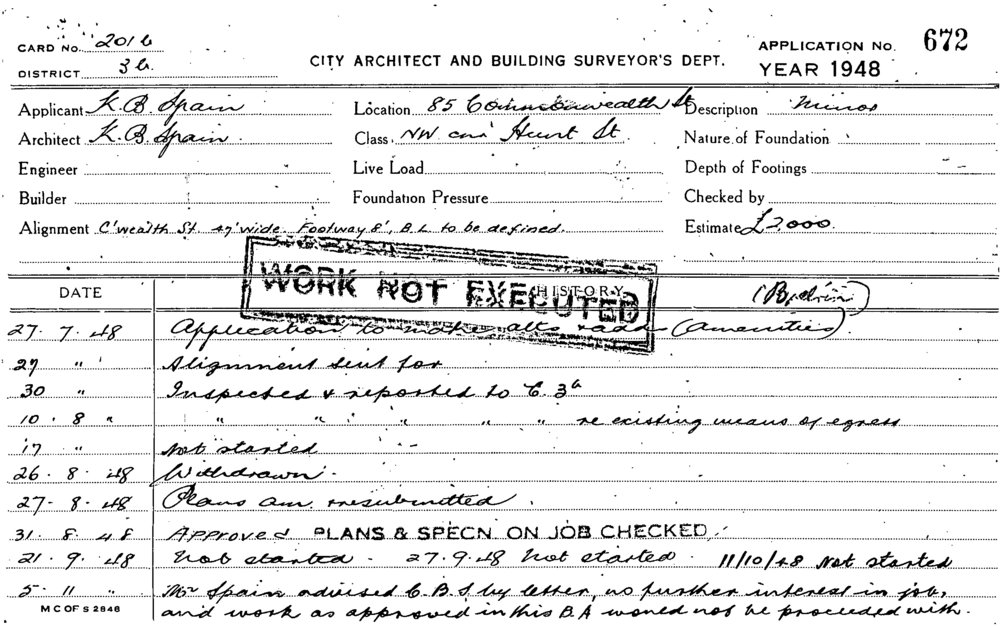 CARD No. 201 b
DISTRICT 3 b.
CITY ARCHITECT AND BUILDING SURVEYOR'S DEPT.
APPLICATION No. 672
YEAR 1948
Applicant K. B. Spain Location 85 Commonwealth St Description Minor
Architect K. B. Spain. Class NW cnr Hunt St. Nature of Foundation
Engineer Live Load Depth of Footings
Builder Foundation Pressure Checked by
Alignment C'wealth St. 47' wide. Footway 8', B.L. to be defined. Estimate £2,000
WORK NOT EXECUTED
DATE HISTORY
27. 7. 48 Application to make alts & adds (amenities).
27 " Alignment sent for
30 " Inspected & reported to C. 3
10. 8 " " " " " " re existing means of egress
17 " Not started
26. 8. 48 Withdrawn.
27. 8. 48 Plans am. resubmitted.
31. 8. 48 Approved PLANS & SPECN. ON JOB CHECKED.
21. 9. 48 Not started - 27.9.48 Not started. 11/10/48 Not started
5. 11 " Mr Spain advised C.B.S. by letter, no further interest in job,
M C OF S 2848 and work as approved in this B.A would not be proceeded with.